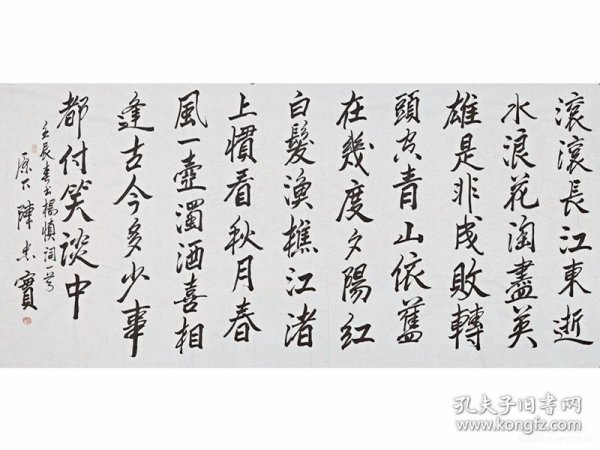 滾滾長江東逝
水浪花淘盡英
雄是非成敗轉
頭空青山依舊
在幾度夕陽紅
白髮漁樵江渚
上慣看秋月春
風一壺濁酒喜相
逢古今多少事
都付笑談中
長春書楊慎詞一首
原下陳忠實
孔夫子旧书网
www.kongfz.com